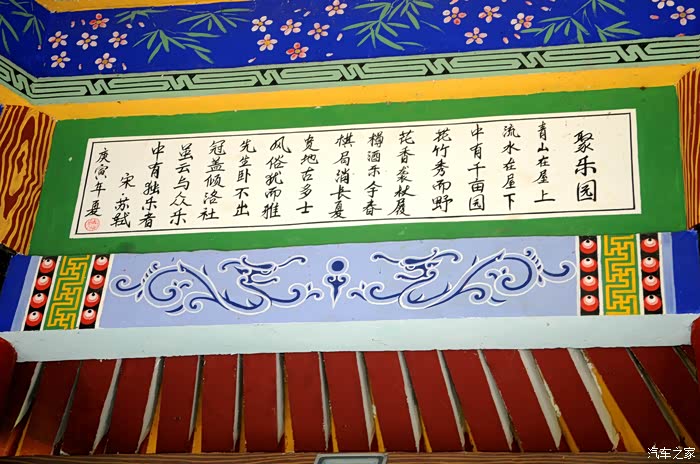 聚乐园
青山在屋上
流水在屋下
中有千亩园
花竹秀而野
花香袭杖履
樽酒乐乎春
棋局消长夏
亥地古多士
风俗犹而雅
先生卧不出
冠盖倾洛社
虽云与众乐
中有独乐者
宋 苏轼
庚寅年夏
汽车之家